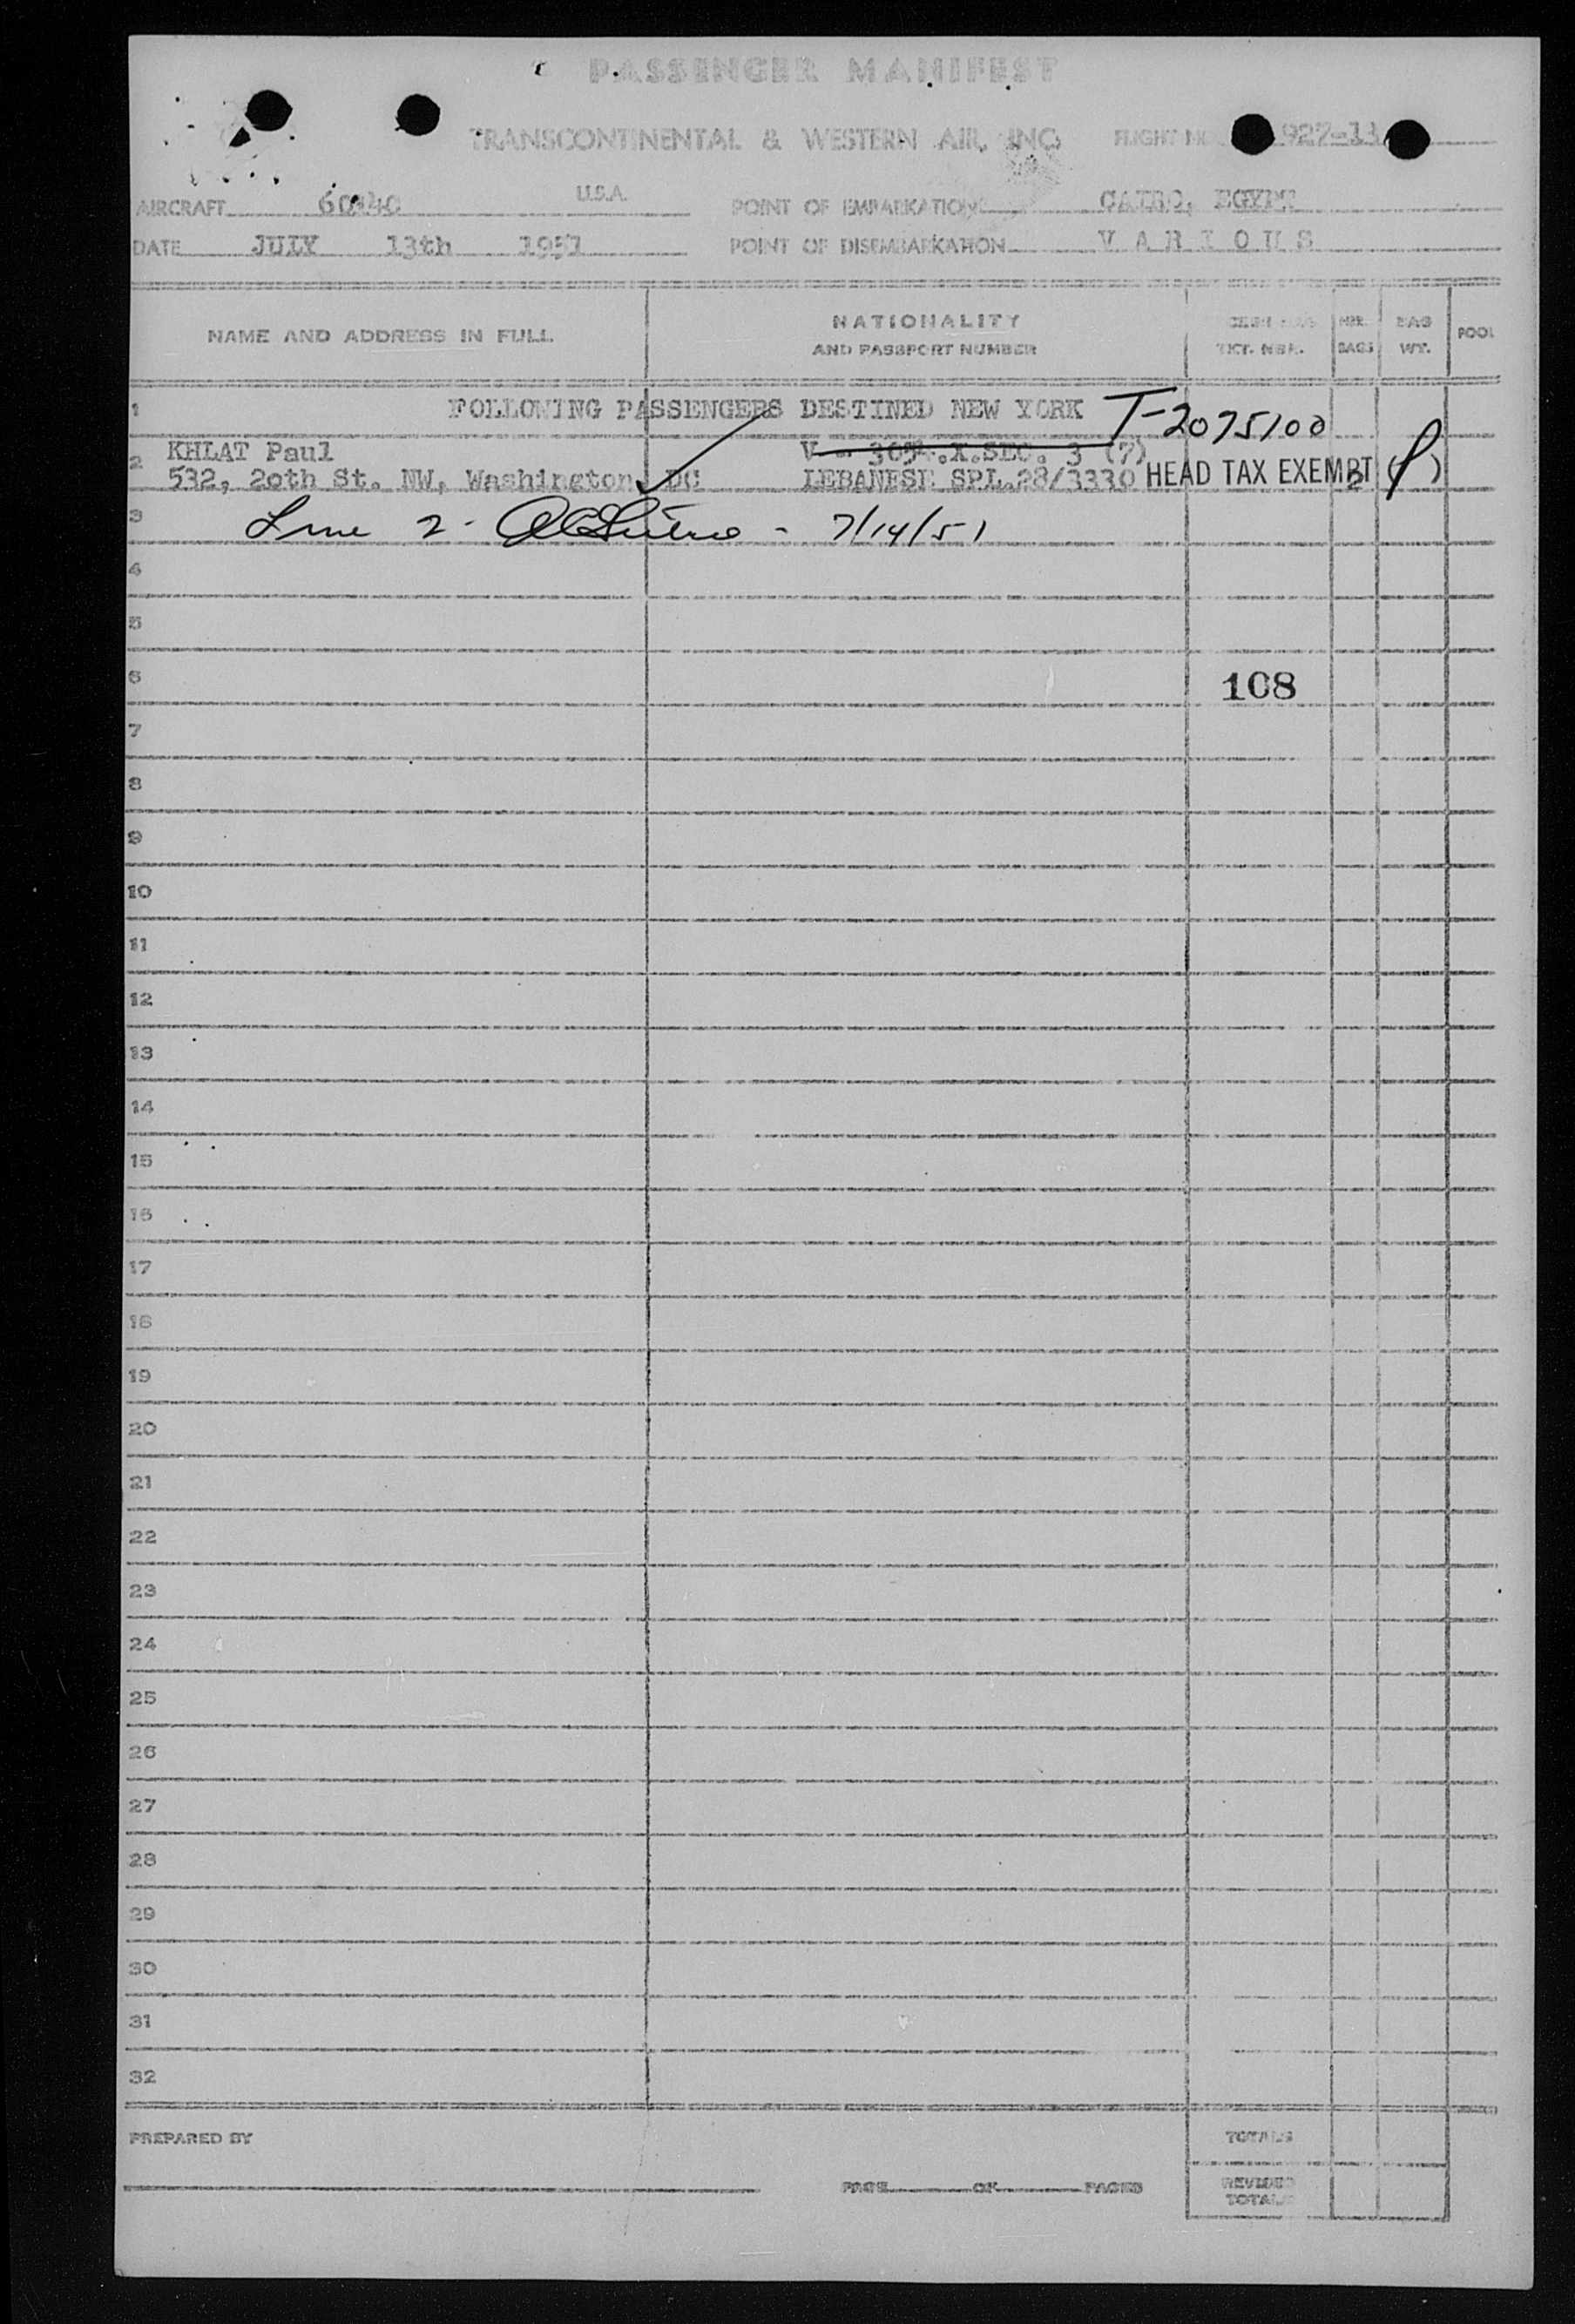 PASSENGER MANIFEST
TRANSCONTINENTAL & WESTERN AIR, INC. FLIGHT NO. 927-13
AIRCRAFT U.S.A. POINT OF EMBARKATION CAIRO, EGYPT
DATE JULY 13th 1951 POINT OF DISEMBARKATION V A R I O U S
NAME AND ADDRESS IN FULL
NATIONALITY
AND PASSPORT NUMBER
TKT. NBR.
NBR.
BAGS
BAG
WT.
POOL
1 FOLLOWING PASSENGERS DESTINED NEW YORK T-2075100
2 KHLAT Paul SEC. 3 (7)
532, 20th St. NW, Washington DC LEBANESE SPL.28/3330 HEAD TAX EXEMPT ( )
3 Line 2 - 7/14/51
4
5
6 108
7
8
9
10
11
12
13
14
15
16
17
18
19
20
21
22
23
24
25
26
27
28
29
30
31
32
PREPARED BY
TOTALS
PAGE OF PAGES
REVISED
TOTALS